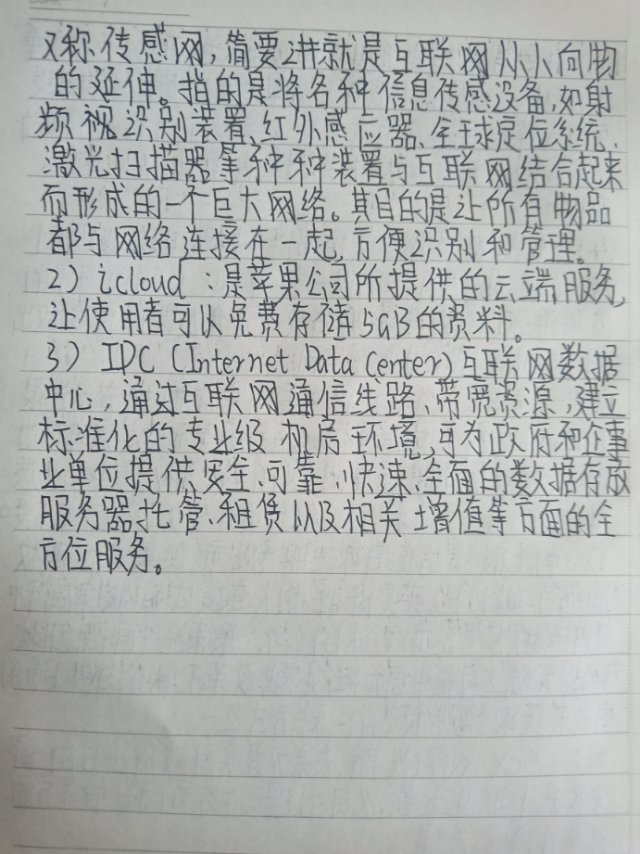 又称传感网，简要讲就是互联网从人向物
的延伸。指的是将各种信息传感设备，如射
频视识别装置、红外感应器、全球定位系统、
激光扫描器等种种装置与互联网结合起来
而形成的一个巨大网络。其目的是让所有物品
都与网络连接在一起，方便识别和管理。
2）icloud：是苹果公司所提供的云端服务，
让使用者可以免费存储5GB的资料。
3）IDC（Internet Data Center）互联网数据
中心，通过互联网通信线路、带宽资源，建立
标准化的专业级机房环境，可为政府和企事
业单位提供安全、可靠、快速、全面的数据存放
服务器托管、租赁以及相关增值等方面的全
方位服务。